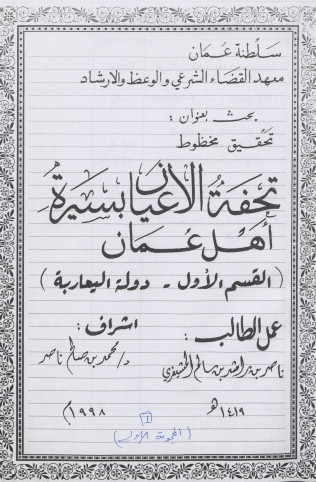 سلطنة عمان
معهد القضاء الشرعي والوعظ والارشاد
بحث بعنوان :
تحقيق مخطوط
تحفة الأعيان بسيرة
أهل عمان
( القسم الأول - دولة اليعاربة )
عمل الطالب : اشراف :
ناصر بن راشد بن سالم د/ محمد بن صالح ناصر
١٤١٩هـ ١٩٩٨م
١
( المجموعة الأولى )